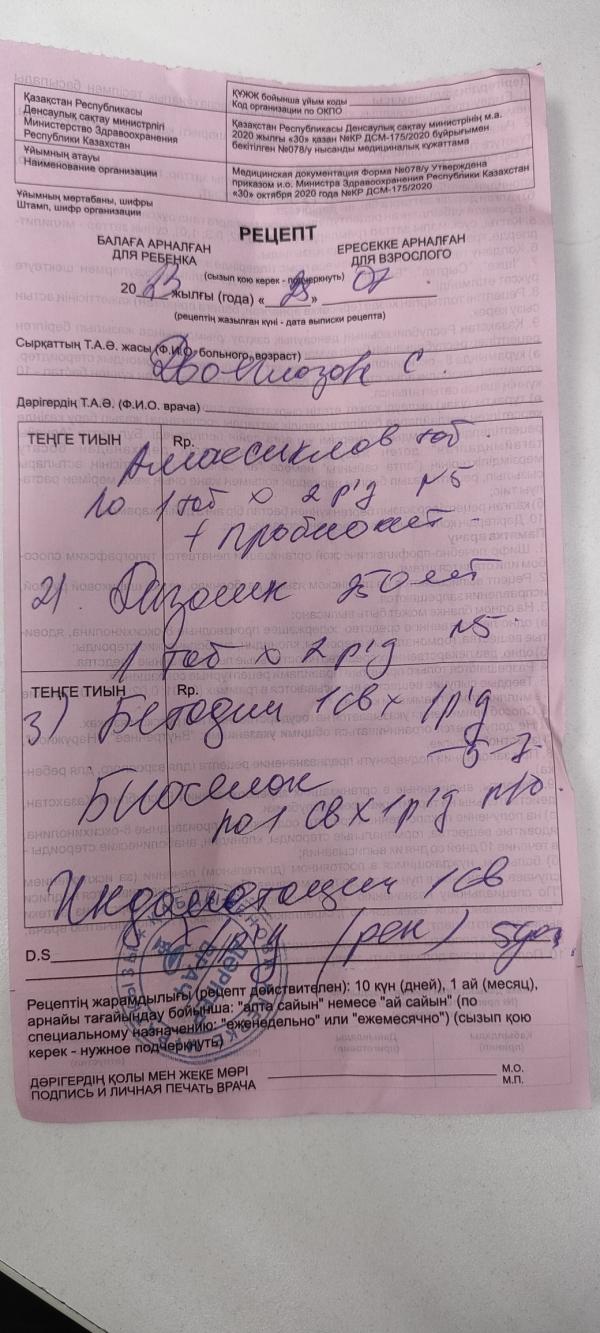 ҚҰЖЖ бойынша ұйым коды
Код организации по ОКПО
Қазақстан Республикасы
Денсаулық сақтау министрлігі
Министерство Здравоохранения
Республики Казахстан
Қазақстан Республикасы Денсаулық сақтау министрінің м.а.
2020 жылғы «30» қазан №КР ДСМ-175/2020 бұйрығымен
бекітілген №078/у нысанды медициналық құжаттама
Ұйымның атауы
Наименование организации
Медицинская документация Форма №078/у Утверждена
приказом и.о. Министра Здравоохранения Республики Казахстан
«30» октября 2020 года №КР ДСМ-175/2020
Ұйымның мөртабаны, шифры
Штамп, шифр организации
РЕЦЕПТ
БАЛАҒА АРНАЛҒАН
ДЛЯ РЕБЕНКА
ЕРЕСЕККЕ АРНАЛҒАН
ДЛЯ ВЗРОСЛОГО
(сызып қою керек - подчеркнуть)
20 23 жылғы (года) « 23 » 07
(рецептің жазылған күні - дата выписки рецепта)
Сырқаттың Т.А.Ә. жасы (Ф.И.О. больного, возраст)
С.
Дәрігердің Т.А.Ә. (Ф.И.О. врача)
ТЕҢГЕ ТИЫН Rp.
Амоксиклов таб
по 1 таб х 2 р/д N5
+ Пробиокит
2). 250 мг
1 таб х 2 р/д N5.
ТЕҢГЕ ТИЫН Rp.
3) Бетадин 1 св х 1 р/д
5-7.
Биоселак
по 1 св х 1 р/д N10.
Индометацин 1 св
х 1 р/д (рек) 5 дн
D.S
Рецептің жарамдылығы (рецепт действителен): 10 күн (дней), 1 ай (месяц),
арнайы тағайындау бойынша: "апта сайын" немесе "ай сайын" (по
специальному назначению: "еженедельно" или "ежемесячно") (сызып қою
керек - нужное подчеркнуть)
ДӘРІГЕРДІҢ ҚОЛЫ МЕН ЖЕКЕ МӨРІ
ПОДПИСЬ И ЛИЧНАЯ ПЕЧАТЬ ВРАЧА
М.О.
М.П.